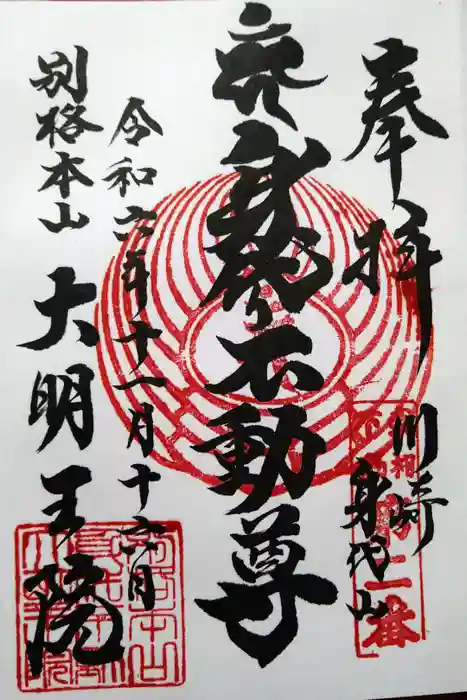 奉拝
川崎
身代山
身代り不動尊
令和六年十一月十六日
別格本山
大明王院